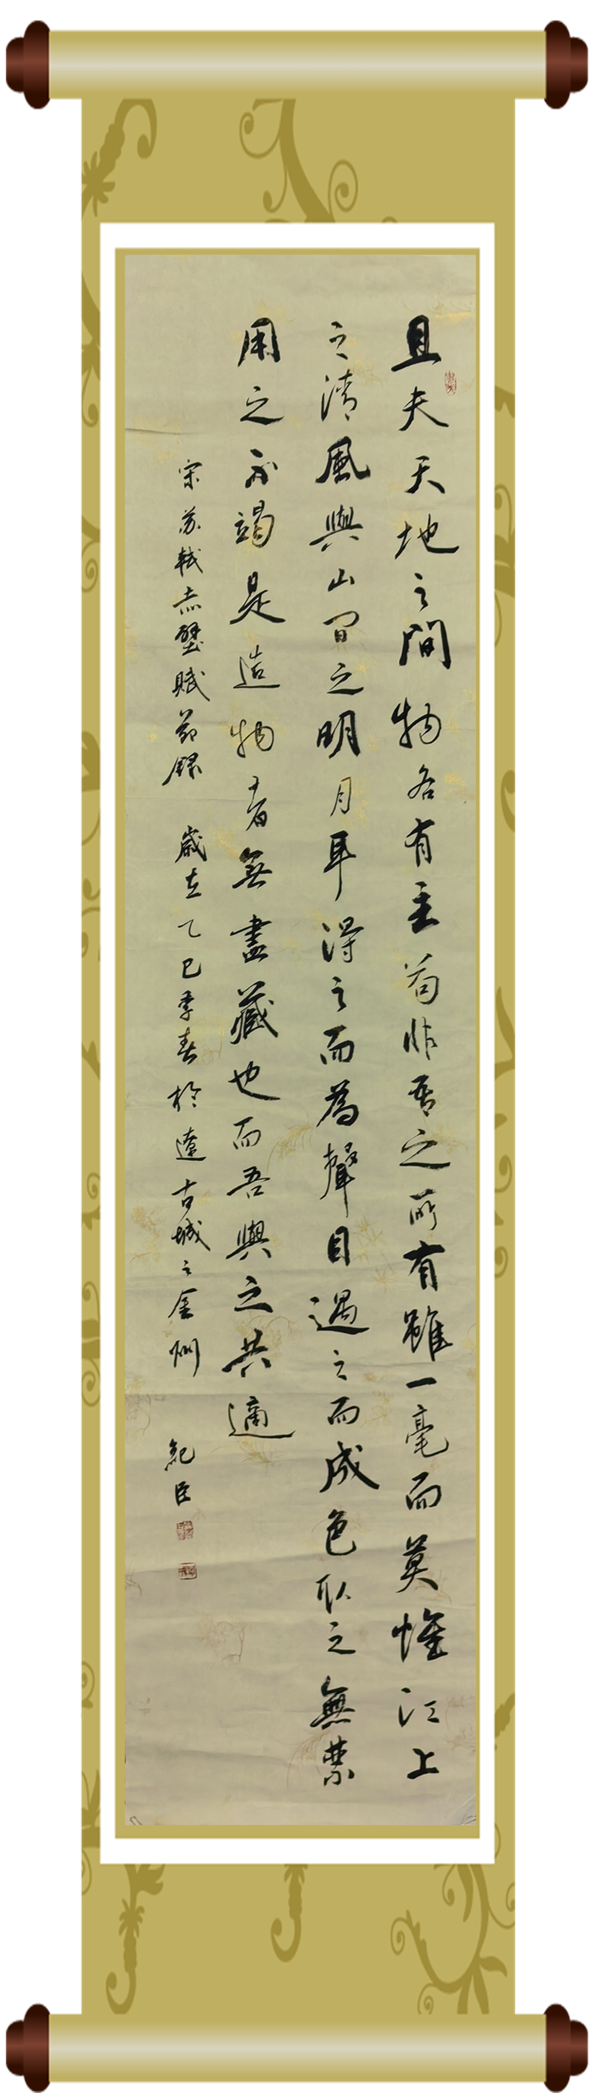 且夫天地之間物各有主苟非吾之所有雖一毫而莫惟江上
之清風與山間之明月耳得之而為聲目遇之而成色取之無禁
用之不竭是造物者無盡藏也而吾與之共適
宋苏軾赤壁賦節録 歲在乙巳季春於遼古城之金州 紀臣